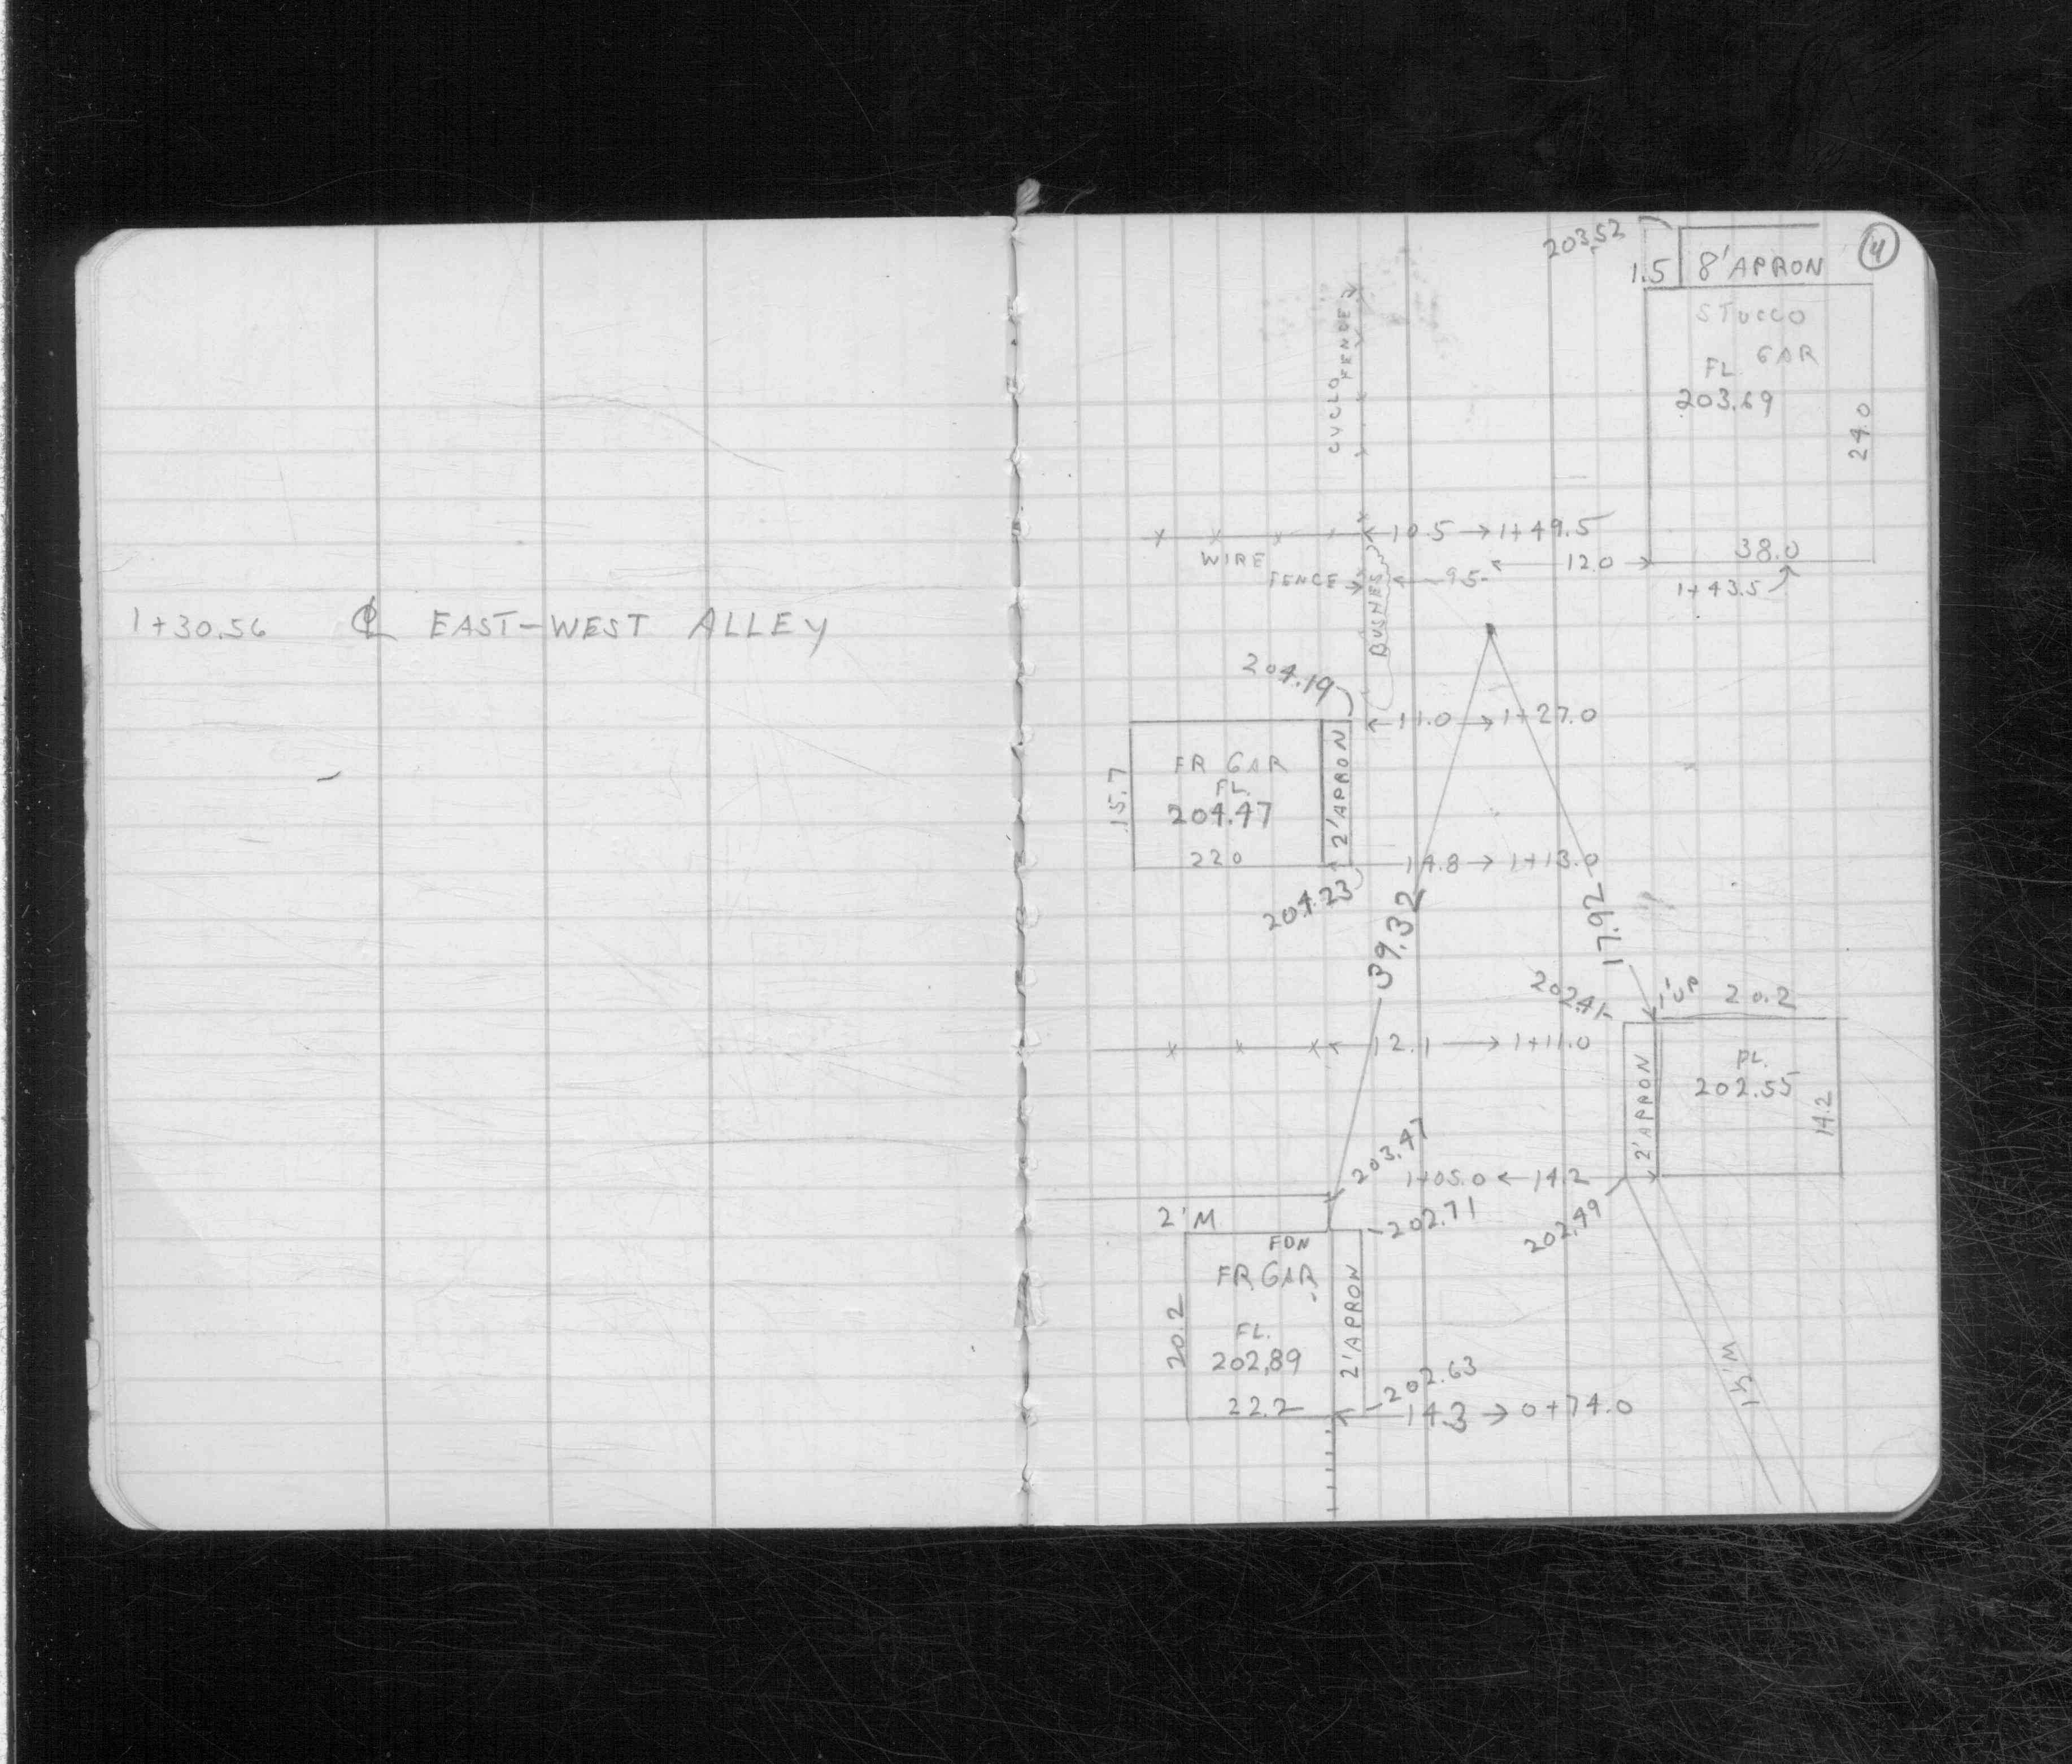 1+30.56 ℄ EAST-WEST ALLEY
4
203.52
1.5 8' APRON
STUCCO
GAR
FL.
203.69
24.0
38.0
1+43.5
CYCLO
FENCE
10.5 → 1+49.5
WIRE
FENCE →
← 9.5
← 12.0 →
BUSHES
204.19
← 11.0 → 1+27.0
FR GAR
FL.
204.47
15.7
22.0
2' APRON
14.8 → 1+13.0
204.23
39.32
17.92
202.41
1' UP 20.2
12.1 → 1+11.0
FL.
202.55
14.2
2' APRON
203.47
1+05.0 ← 14.2
202.49
2' M
202.71
FDN
FR GAR
FL.
202.89
20.2
22.2
2' APRON
202.63
14.3 → 0+74.0